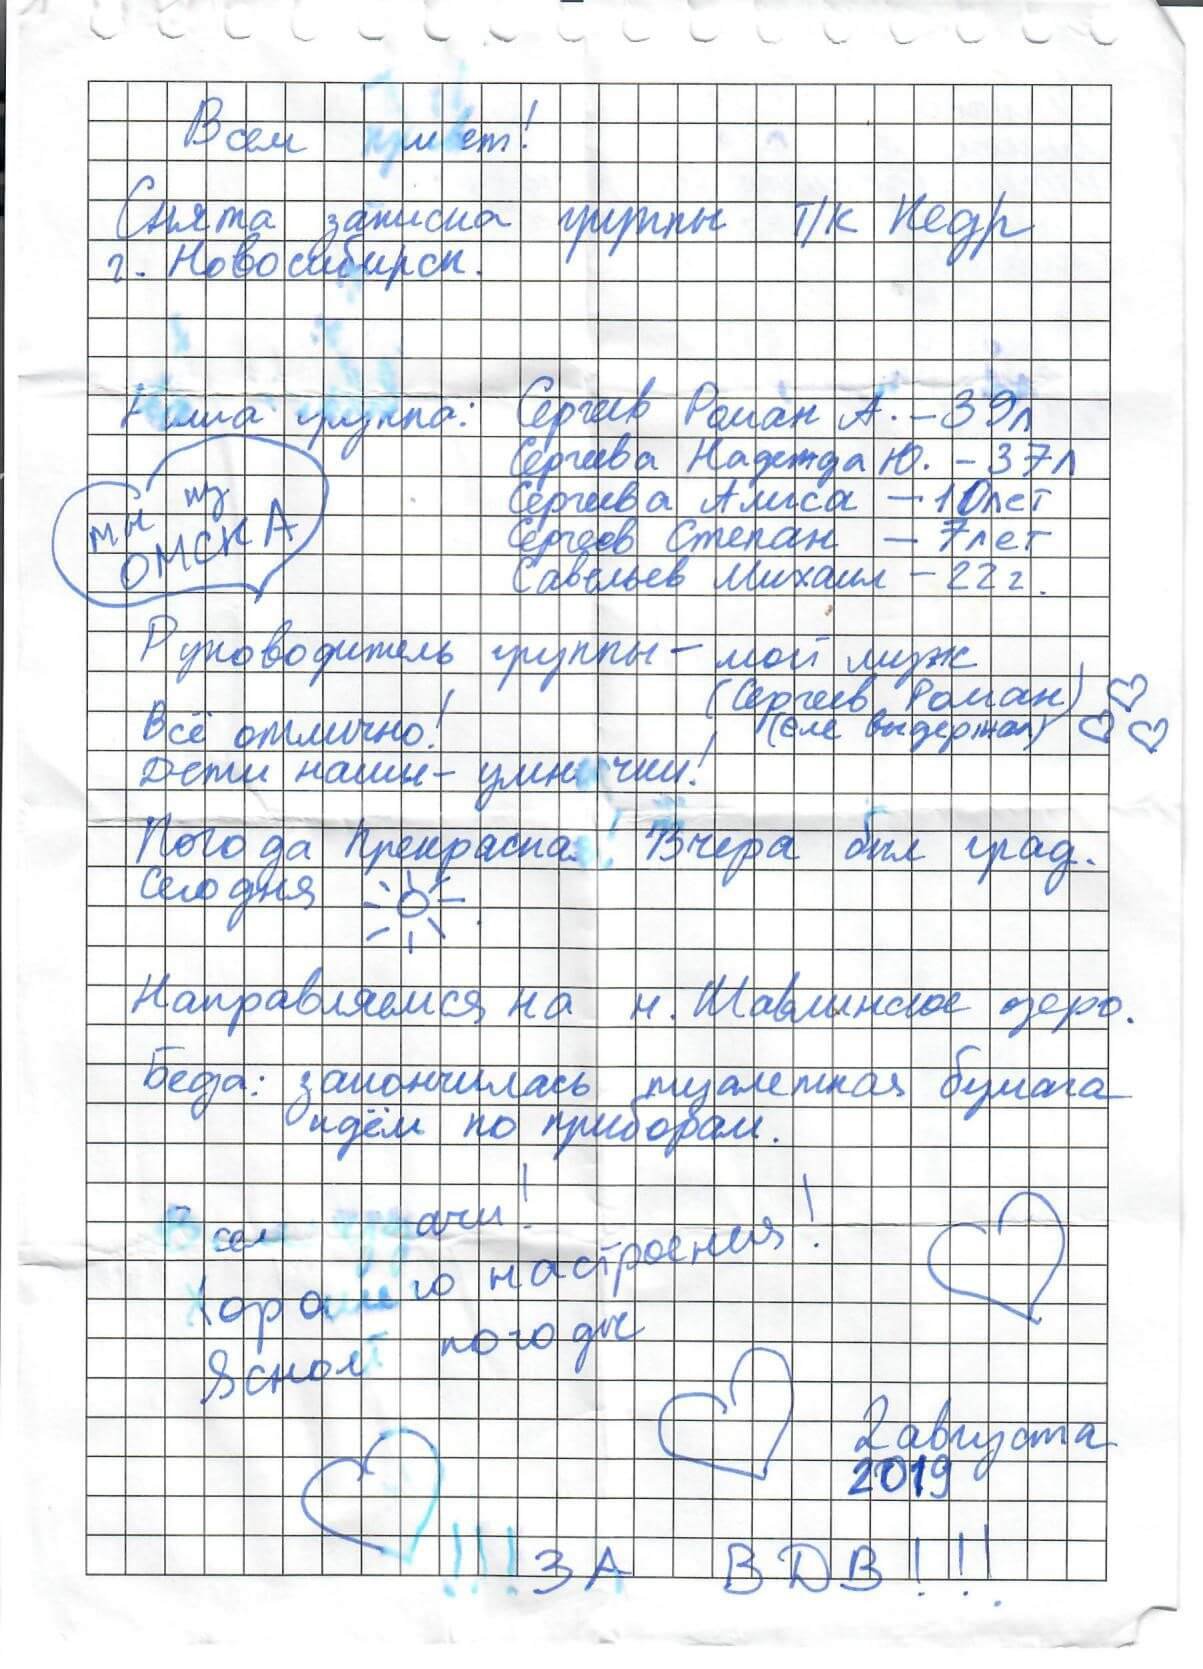 Всем привет!
Снята записка группы т/к Кедр
г. Новосибирск.
Наша группа: Сергеев Роман А. - 39л
Сергеева Надежда Ю. - 37л
Сергеева Алиса - 10лет
Сергеев Степан - 7лет
Савельев Михаил - 22г.
мы из
ОМСКА
Руководитель группы - мой муж
(Сергеев Роман)
Всё отлично! (еле выдержал)
Дети наши - умнички!
Погода Прекрасная! Вчера был град.
Сегодня
Направляемся на н. Шавлинское озеро.
Беда: закончилась туалетная бумага
идём по приборам.
Всем удачи!
Хорошего настроения!
Ясной погоды
2 августа
2019
!!! ЗА ВДВ!!!